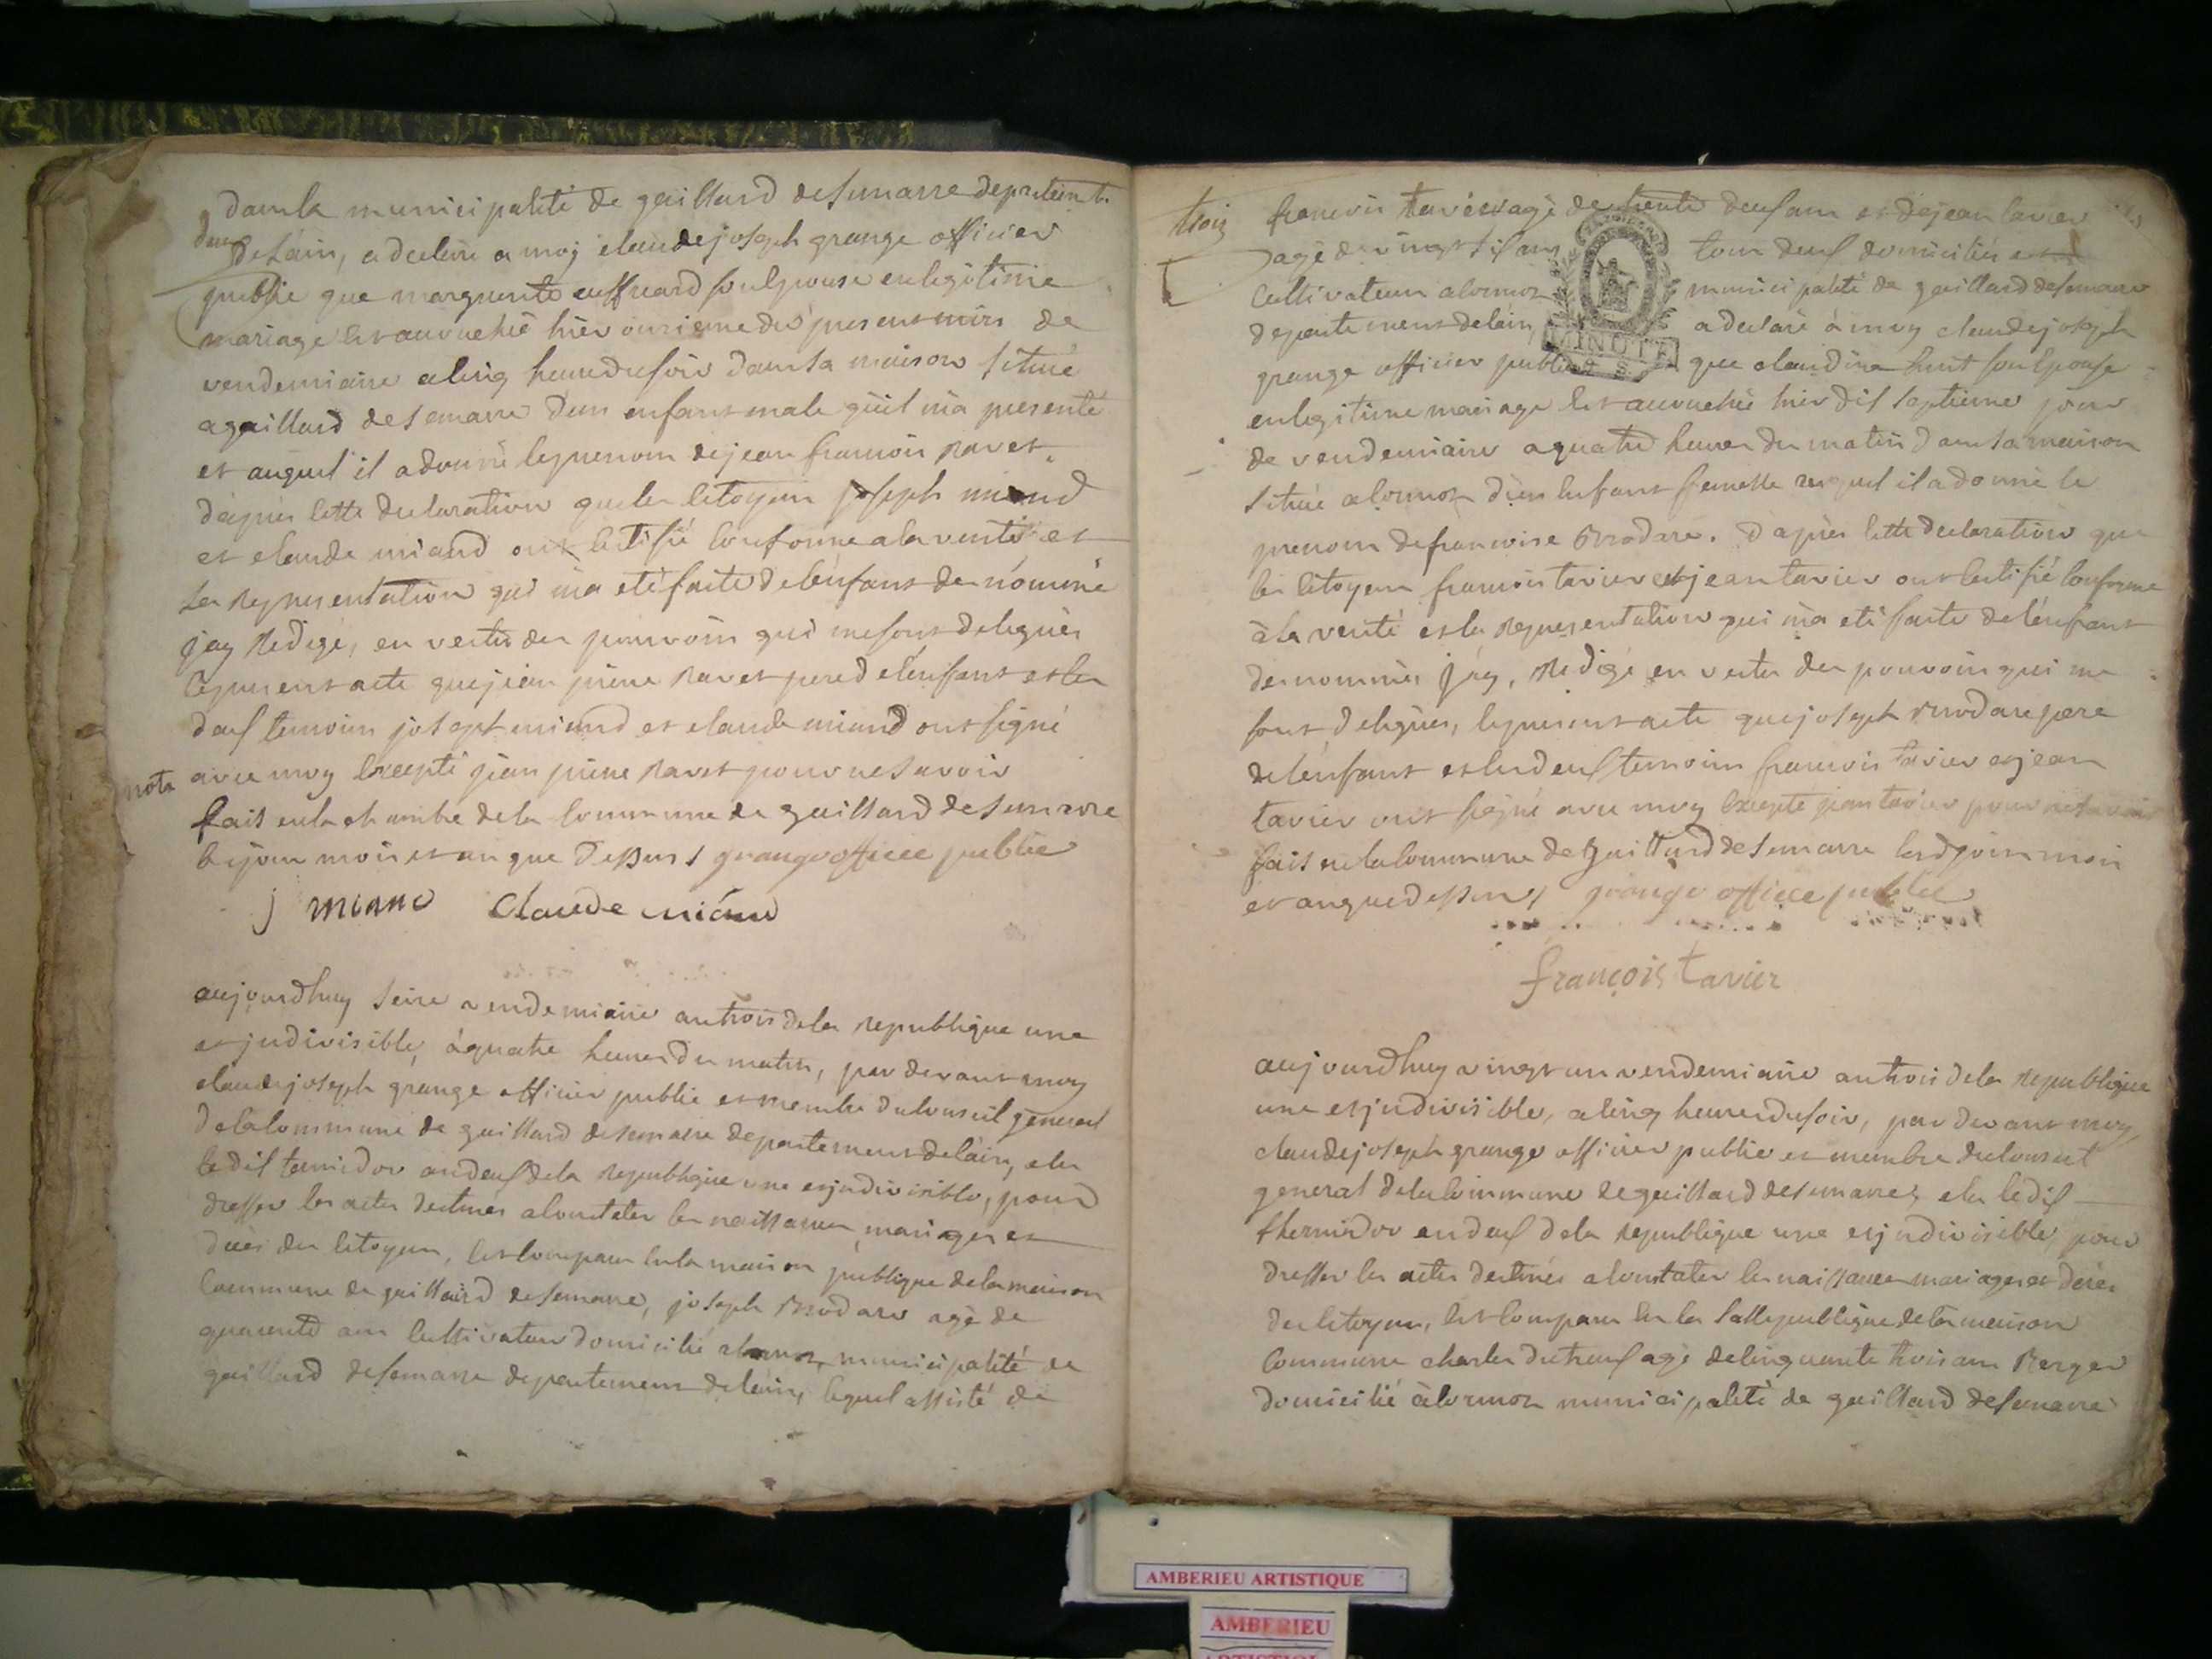 dans la municipalité de gaillard desemarre departem t.
deux
de lain, a declaré a moy claude joseph grange officier
public que marguerite cuffreard son épouse en legitime
mariage est accouchée hier onzieme du present mois de
vendemiaire a cinq heure du soir dans sa maison situé
a gaillard desemarre d'un enfant male qu'il m'a presenté
et auquel il a donné le prenom de jean francois ravet.
d'après cette declaration que les citoyens joseph miand
et claude miand ont certifié conforme a la verité et
la representation qui m'a eté faite de l'enfant denommé
jay redigé, en vertu des pouvoirs qui me sont delegués
le present acte que jean pierre ravet pere de l'enfant et les
deux temoins joseph miand et claude miand ont signé
nota avec moy excepté jean pierre ravet pour ne savoir
fait en la chambre de la commune de gaillard desemarre
le jour mois et an que dessus / grange officee publice
j miand claude miand
aujourdhuy seize vendemiaire an trois de la republique une
et indivisible, à quatre heures du matin, par devant moy
claude joseph grange officier public et membre du conseil general
de la commune de gaillard desemarre departement de lain, elu
le dix termidor an deux de la republique une et indivisible, pour
dresser les actes destinés a constater les naissances mariages et
décès des citoyens, est comparu en la maison publique de la maison
commune de gaillard desemarre, joseph brodare agé de
quarente ans cultivateur domicilié a lormoz, municipalité de
gaillard desemarre departement de lain, lequel assisté de
trois
francois tavier agé de trente deux ans et de jean tavier
agé de vingt six ans tous deux domiciliés et
cultivateurs a lormoz municipalité de gaillard desemarre
departement de lain, a declaré à moy claude joseph
MINUTE
grange officier public que claudine hust son épouse
en legitime mariage est accouchée hier dix septieme jour
de vendemiaire a quatre heures du matin dans sa maison
situé a lormoz d'un enfant femelle auquel il a donné le
prenom de francoise brodare. d'après cette declaration que
les citoyens francois tavier et jean tavier ont certifié conforme
à la verité et la representation qui m'a eté faite de l'enfant
denommés jay, redigé en vertu des pouvoirs qui me
sont delegués, le present acte que joseph brodare pere
de l'enfant et les deux temoins francois tavier et jean
tavier ont signé avec moy excepté jean tavier pour ne savoir
fait en la commune de gaillard desemarre les d jour mois
et an que dessus / grange officee publice
françois tavier
aujourdhuy vingt un vendemiaire an trois de la republique
une et indivisible, a cinq heures du soir, par devant moy
claude joseph grange officier public et membre du conseil
general de la commune de gaillard desemarre, elu le dix
thermidor en deux de la republique une et indivisible, pour
dresser les actes destinés a constater les naissances mariages et décès
des citoyens, est comparu en la salle publique de la maison
commune charles dutreux agé de cinquante trois ans berger
domicilié à lormoz municipalité de gaillard desemarre
AMBERIEU ARTISTIQUE
AMBERIEU
ARTISTIQUE